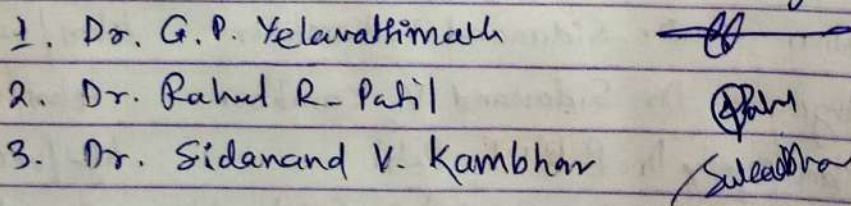 1. Dr. G.P. Yelavattimath
2. Dr. Rahul R. Patil
3. Dr. Sidanand V. Kambhar